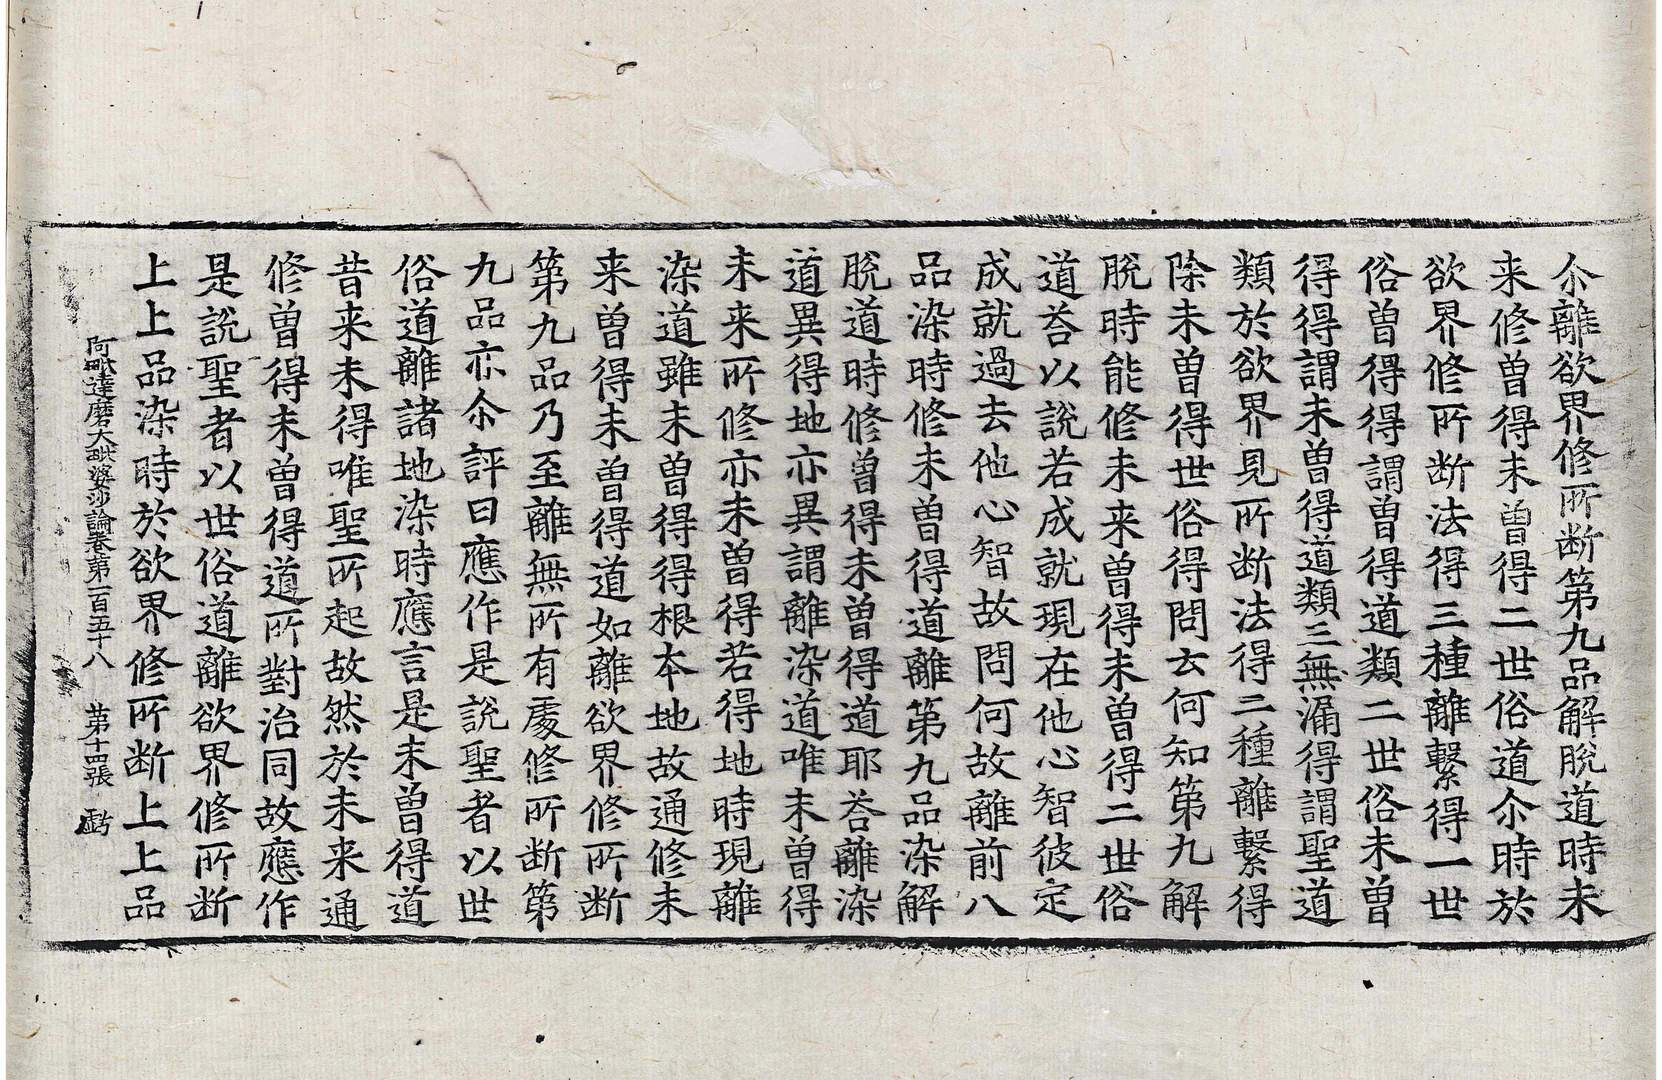 尒離欲界修所断第九品解脫道時未
来修曽得未曽得二世俗道尒時於
欲界修所断法得三種離繫得一世
俗曽得得謂曽得道類二世俗未曽
得得謂未曽得道類三無漏得謂聖道
類於欲界見所断法得二種離繫得
除未曽得世俗得問云何知第九解
脫時能修未来曽得未曽得二世俗
道荅以說若成就現在他心智彼定
成就過去他心智故問何故離前八
品染時修未曽得道離第九品染解
脫道時修曽得未曽得道耶荅離染
道異得地亦異謂離染道唯未曽得
未来所修亦未曽得若得地時現離
染道雖未曽得得根本地故通修未
来曽得未曽得道如離欲界修所断
第九品乃至離無所有處修所断第
九品亦尒評曰應作是說聖者以世
俗道離諸地染時應言是未曽得道
昔来未得唯聖所起故然於未来通
修曽得未曽得道所對治同故應作
是說聖者以世俗道離欲界修所断
上上品染時於欲界修所断上上品
阿毗達磨大毗婆沙論卷第一百五十八　第十四張　虧